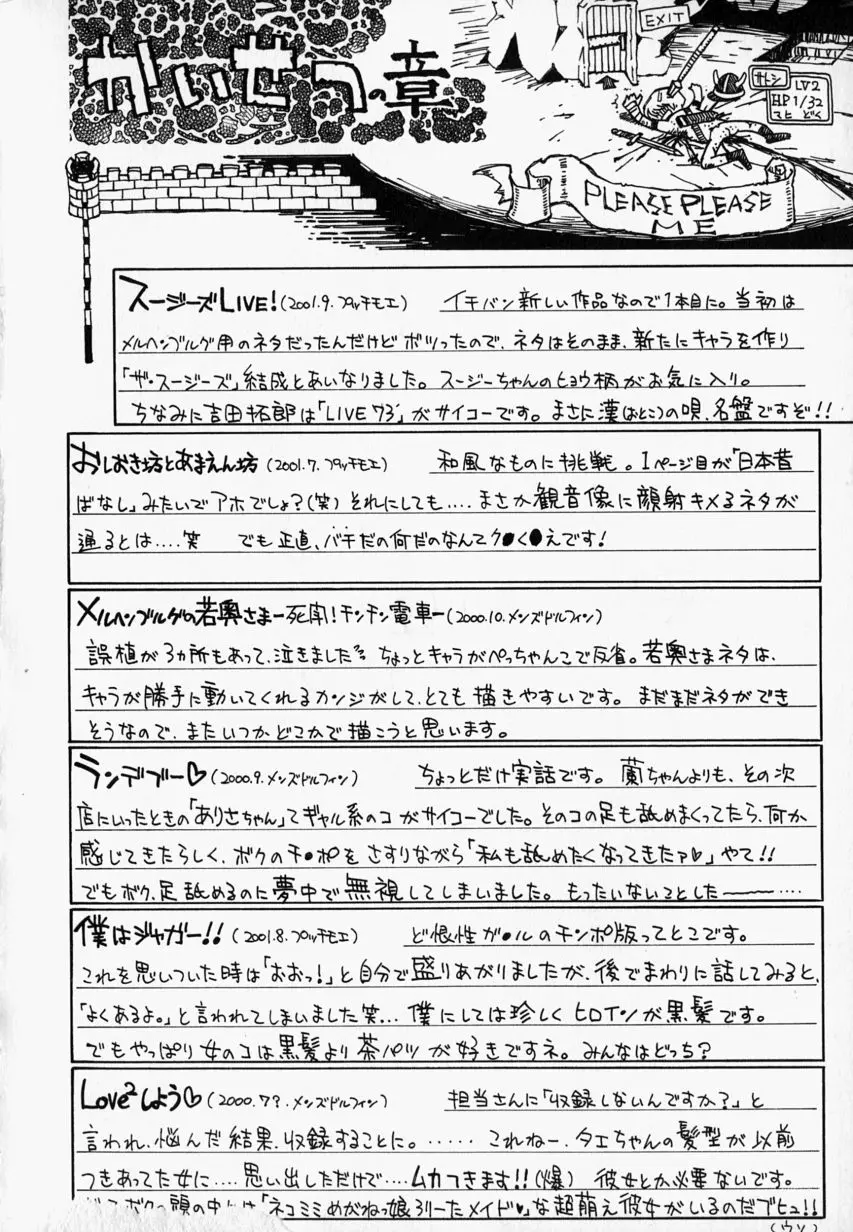 かいせつの章
EXIT
サトシ LV2
HP 1/32
マヒ どく
PLEASE PLEASE
ME
スージーズLIVE!(2001.9.プッチモエ) イチバン新しい作品なので1本目に。当初は
メルヘンブルゲ用のネタだったんだけどボツったので、ネタはそのまま、新たにキャラを作り
「ザ・スージーズ」結成とあいなりました。スージーちゃんのヒョウ柄がお気に入り。
ちなみに吉田拓郎は「LIVE'73」がサイコーです。まさに漢(おとこ)の唄、名盤ですぞ!!
おしおき坊とあまえん坊(2001.7.プッチモエ) 和風なものに挑戦。1ページ目が「日本昔
ばなし」みたいでアホでしょ?(笑)それにしても....まさか観音像に顔射キメるネタが
通るとは....笑 でも正直、バチだの何だのなんてク●く●えです!
メルヘンブルゲの若奥さまー死闘!チンチン電車ー(2000.10.メンズドルフィン)
誤植が3カ所もあって、泣きました ちょっとキャラがぺっちゃんこで反省。若奥さまネタは、
キャラが勝手に動いてくれるカンジがして、とても描きやすいです。まだまだネタができ
そうなので、またいつかどこかで描こうと思います。
ランデブー♡(2000.9.メンズドルフィン) ちょっとだけ実話です。蘭ちゃんよりも、その次
店にいったときの「ありさちゃん」てギャル系のコがサイコーでした。そのコの足も舐めまくってたら、何か
感じてきたらしく、ボクのチ●ポをさすりながら「私も舐めたくなってきたァ♡」やて!!
でもボク、足舐めるのに夢中で無視してしまいました。もったいないことした〜....
僕はジャガー!!(2001.8.プッチモエ) ど根性ガ●ルのチンポ版ってとこです。
これを思いついた時は「おおっ!」と自分で盛りあがりましたが、後でまわりに話してみると、
「よくあるよ。」と言われてしまいました笑... 僕にしては珍しくヒロインが黒髪です。
でもやっぱり女のコは黒髪より茶パツが好きですネ。みんなはどっち?
Love²しよう♡(2000.7?.メンズドルフィン) 担当さんに「収録しないんですか?」と
言われ、悩んだ結果、収録することに。...... これねー、タエちゃんの髪型が以前
つきあってた女に....思い出しただけで....ムカつきます!!(爆) 彼女とか必要ないです。
ボクの頭の中には「ネコミミめがねっ娘ろりーたメイド♥」な超萌え彼女がいるのだブヒュ!!
(ウソ)